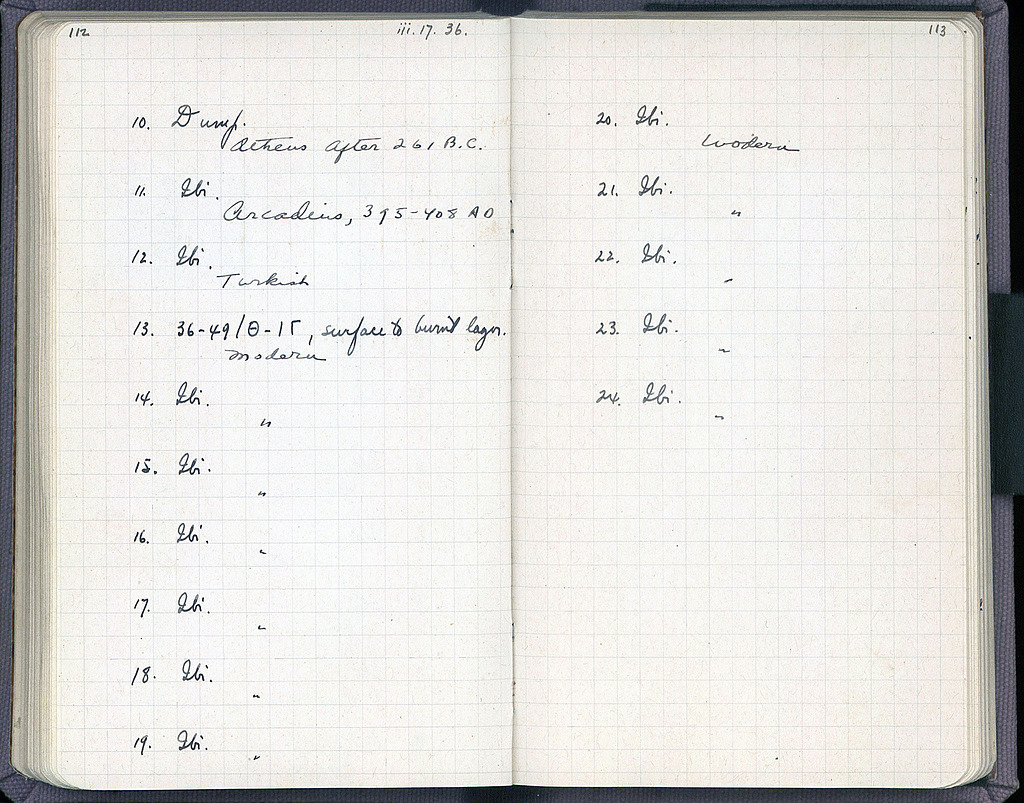 112
iii. 17. 36.
10. Dump.
Athens after 261 B.C.
11. Ibi.
Arcadius, 395-408 AD
12. Ibi.
Turkish
13. 36-49/Θ-ΙΓ, surface to burnt layer.
modern
14. Ibi.
"
15. Ibi.
"
16. Ibi.
"
17. Ibi.
"
18. Ibi.
"
19. Ibi.
"
113
20. Ibi.
Modern
21. Ibi.
"
22. Ibi.
"
23. Ibi.
"
24. Ibi.
"